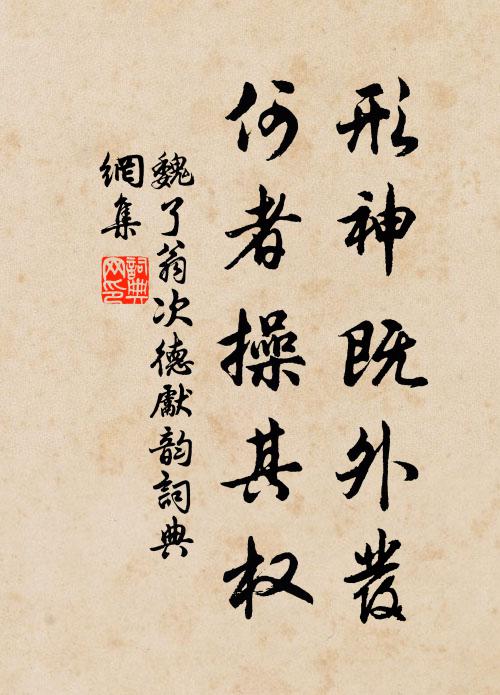 形神既外發
何者操其权
魏了翁次德獻韵詞典
網集
詞典
网印